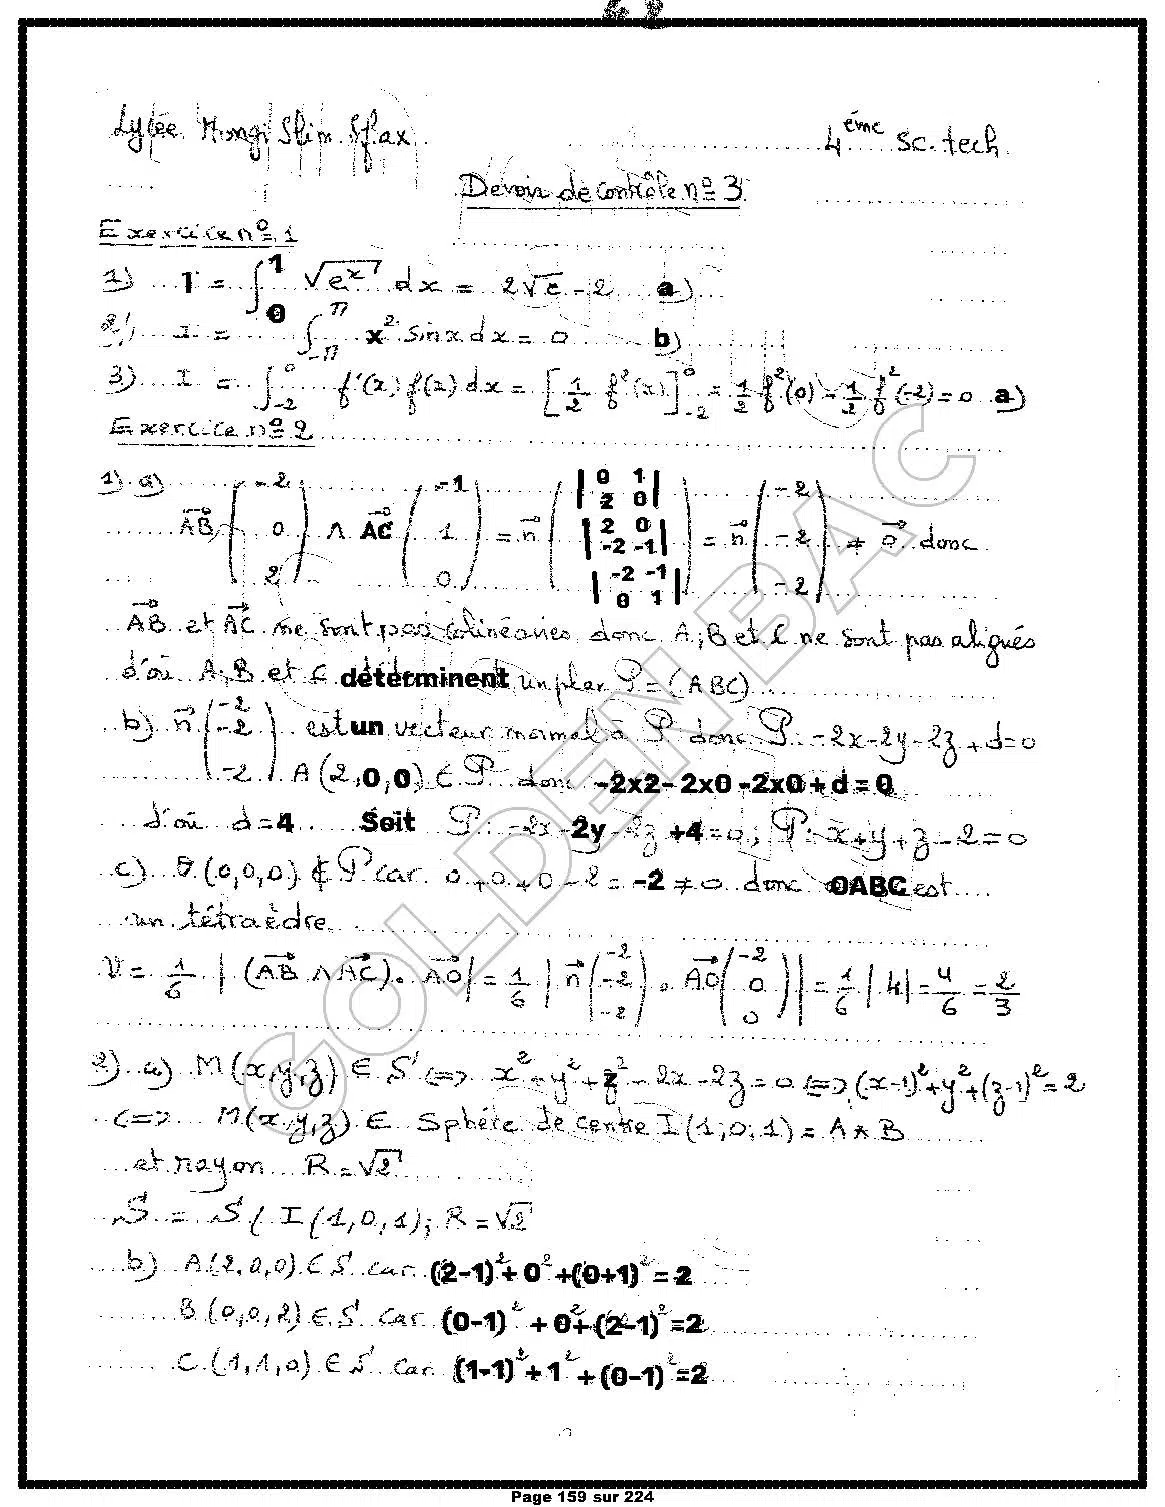 Lycée Mongi Slim Sfax
4ème sc.tech
Devoir de contrôle n° 3
Exercice n° 1
1) I = ∫₀¹ √(eˣ) dx = 2√e - 2 a)
2) I = ∫_{-π}^{π} x² sinx dx = 0 b)
3) I = ∫_{-2}^{0} f'(x) f(x) dx = [1/2 f²(x)]_{-2}^{0} = 1/2 f²(0) - 1/2 f²(-2) = 0 a)
Exercice n° 2
1) a) AB (-2 0 2) ∧ AC (-1 1 0) = n (|0 1 / 2 0| |2 0 / -2 -1| |-2 -1 / 0 1|) = n (-2 -2 -2) ≠ 0 donc
AB et AC ne sont pas colinéaires donc A, B et C ne sont pas alignés
d'où A, B et C déterminent un plan P = (ABC)
b) n (-2 -2 -2) est un vecteur normal à P donc P: -2x-2y-2z+d=0
A(2,0,0) ∈ P donc -2x2-2x0-2x0+d=0
d'où d=4 Soit P: -2x-2y-2z+4=0; P: x+y+z-2=0
c) O(0,0,0) ∉ P car 0+0+0-2=-2≠0 donc OABC est
un tétraèdre
V = 1/6 |(AB ∧ AC). AO| = 1/6 |n (-2 -2 -2) . AO (-2 0 0)| = 1/6 |4| = 4/6 = 2/3
2) a) M(x,y,z) ∈ S ⇔ x²+y²+z²-2x-2z=0 ⇔ (x-1)²+y²+(z-1)²=2
⇔ M(x,y,z) ∈ Sphére de centre I(1,0,1) = A*B
et rayon R=√2
S = S(I(1,0,1); R=√2
b) A(2,0,0) ∈ S car (2-1)²+0²+(0+1)²=2
B(0,0,2) ∈ S car (0-1)²+0²+(2-1)²=2
C(1,1,0) ∈ S car (1-1)²+1²+(0-1)²=2
GOLDEN BAC
Page 159 sur 224